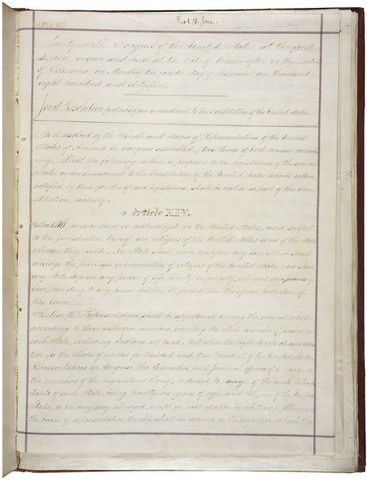 Rec'd 16 June.
Thirty-ninth Congress of the United States, at the first
Session, begun and held at the City of Washington, in the District
of Columbia, on Monday the fourth day of December one thousand
eight hundred and sixty-five.
Joint Resolution proposing an amendment to the Constitution of the United States.
Be it resolved by the Senate and House of Representatives of the United
States of America in Congress assembled, (two thirds of both Houses concur-
ring,) That the following article be proposed to the legislatures of the several
States as an amendment to the Constitution of the United States, which when
ratified by three fourths of said legislatures, shall be valid as part of the Con-
stitution, namely:
Article XIV.
Section 1. All persons born or naturalized in the United States, and subject
to the jurisdiction thereof, are citizens of the United States and of the State
wherein they reside. No State shall make or enforce any law which shall
abridge the privileges or immunities of citizens of the United States; nor shall
any State deprive any person of life, liberty, or property, without due process of
law; nor deny to any person within its jurisdiction the equal protection of
the laws.
Section 2. Representatives shall be apportioned among the several States
according to their respective numbers, counting the whole number of persons in
each State, excluding Indians not taxed. But when the right to vote at any elec-
tion for the choice of electors for President and Vice President of the United States,
Representatives in Congress, the Executive and Judicial officers of a State, or
the members of the Legislature thereof, is denied to any of the male inhab-
itants of such State, being twenty-one years of age, and citizens of the United
States, or in any way abridged, except for participation in rebellion, or other crime,
the basis of representation therein shall be reduced in the proportion which the